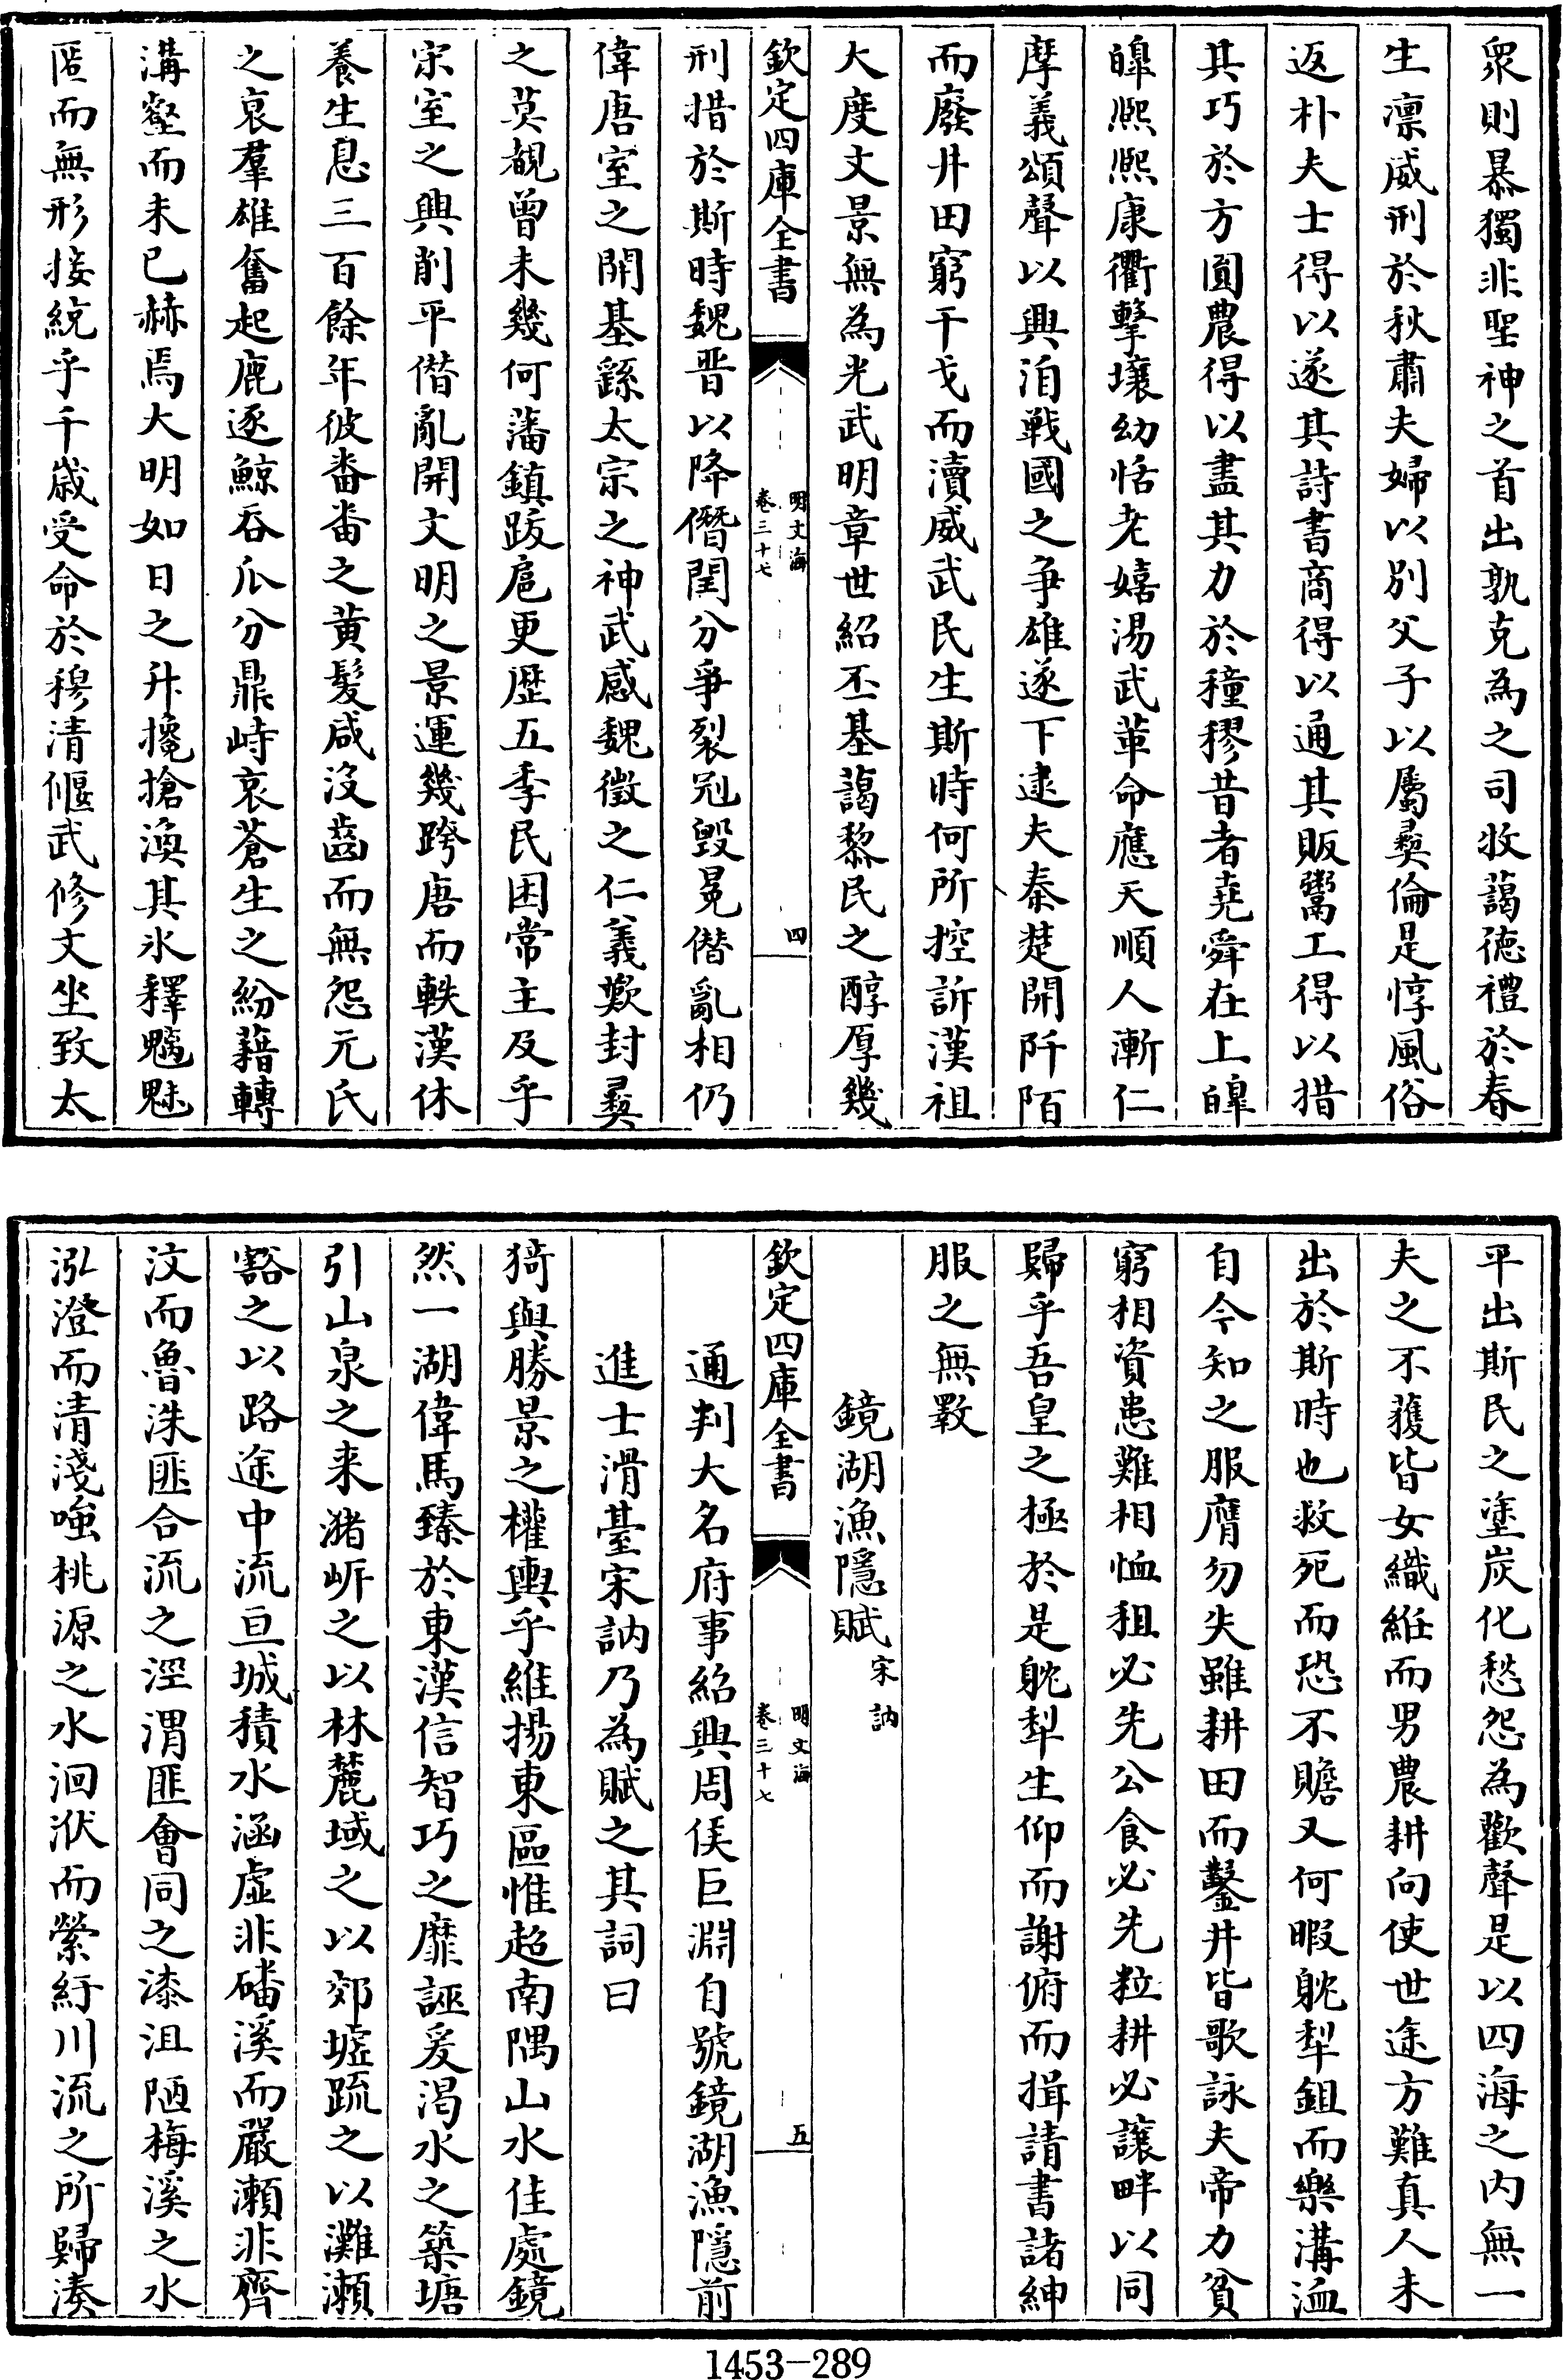 衆則暴獨非聖神之首出孰克為之司牧藹徳禮於春
生凛威刑於秋肅夫婦以别父子以屬彛倫是惇風俗
返朴夫士得以遂其詩書商得以通其販鬻工得以措
其巧於方圓農得以盡其力於穜穋昔者堯舜在上皥
皥熙熙康衢擊壤幼恬老嬉湯武革命應天順人漸仁
摩義頌聲以興洎戰國之爭雄遂下逮夫秦楚開阡陌
而廢井田窮干戈而瀆威武民生斯時何所控訴漢祖
大度文景無為光武明章世紹丕基藹黎民之醇厚幾
欽定四庫全書
明文海
卷三十七
四
刑措於斯時魏晋以降僭閏分爭裂冠毁冕僣亂相仍
偉唐室之開基繇太宗之神武感魏徵之仁義歎封彛
之莫覩曾未幾何藩鎮跋扈更歴五季民困常主及乎
宋室之興削平僣亂開文明之景運幾跨唐而軼漢休
養生息三百餘年彼番番之黄髪咸没齒而無怨元氏
之哀羣雄奮起鹿逐鯨吞瓜分鼎峙哀蒼生之紛藉轉
溝壑而未已赫焉大明如日之升攙搶渙其氷釋魑魅
匿而無形接統乎千歳受命於穆清偃武修文坐致太
平出斯民之塗炭化愁怨為歡聲是以四海之内無一
夫之不蒦皆女織絍而男農耕向使世途方難真人未
出於斯時也救死而恐不贍又何暇躭犁鉏而樂溝洫
自今知之服膺勿失雖耕田而鑿井皆歌詠夫帝力貧
窮相資患難相恤租必先公食必先粒耕必讓畔以同
歸乎吾皇之極於是躭犁生仰而謝俯而揖請書諸紳
服之無斁
鏡湖漁隱賦宋訥
欽定四庫全書
明文海
卷三十七
五
通判大名府事紹興周侯巨淵自號鏡湖漁隱前
進士滑臺宋訥乃為賦之其詞曰
猗與勝景之權輿乎維揚東區惟超南隅山水佳處鏡
然一湖偉馬臻於東漢信智巧之靡誣爰渴水之築塘
引山泉之来潴岓之以林麓域之以郊墟疏之以灘瀬
豁之以路途中流亘城積水涵虚非磻溪而嚴瀬非齊
汶而魯洙匪合流之涇渭匪會同之漆沮陋梅溪之水
泓澄而清淺嗤桃源之水洄洑而縈紆川流之所歸湊